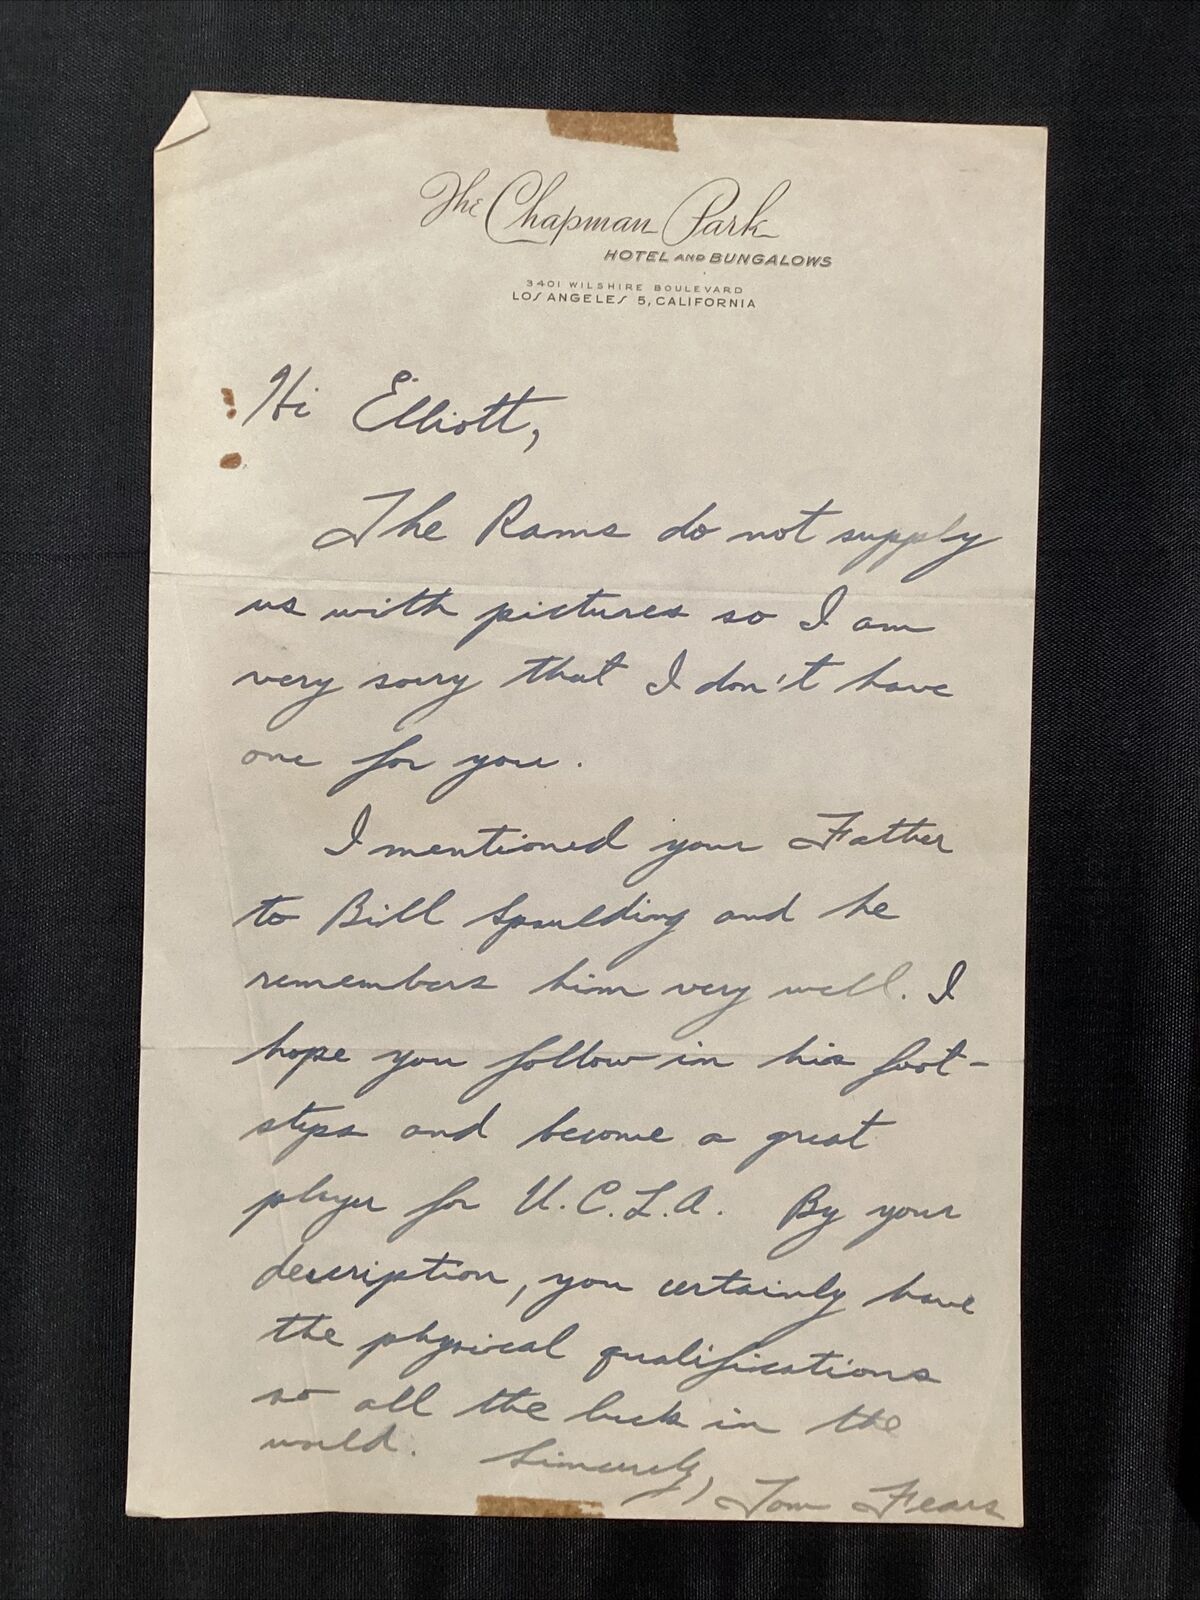 The Chapman Park
HOTEL AND BUNGALOWS
3401 WILSHIRE BOULEVARD
LOS ANGELES 5, CALIFORNIA
Hi Elliott,
The Rams do not supply
us with pictures so I am
very sorry that I don't have
one for you.
I mentioned your Father
to Bill Spaulding and he
remembers him very well. I
hope you follow in his foot-
steps and become a great
player for U.C.L.A. By your
description, you certainly have
the physical qualifications
so all the luck in the
world. Sincerely, Tom Fears